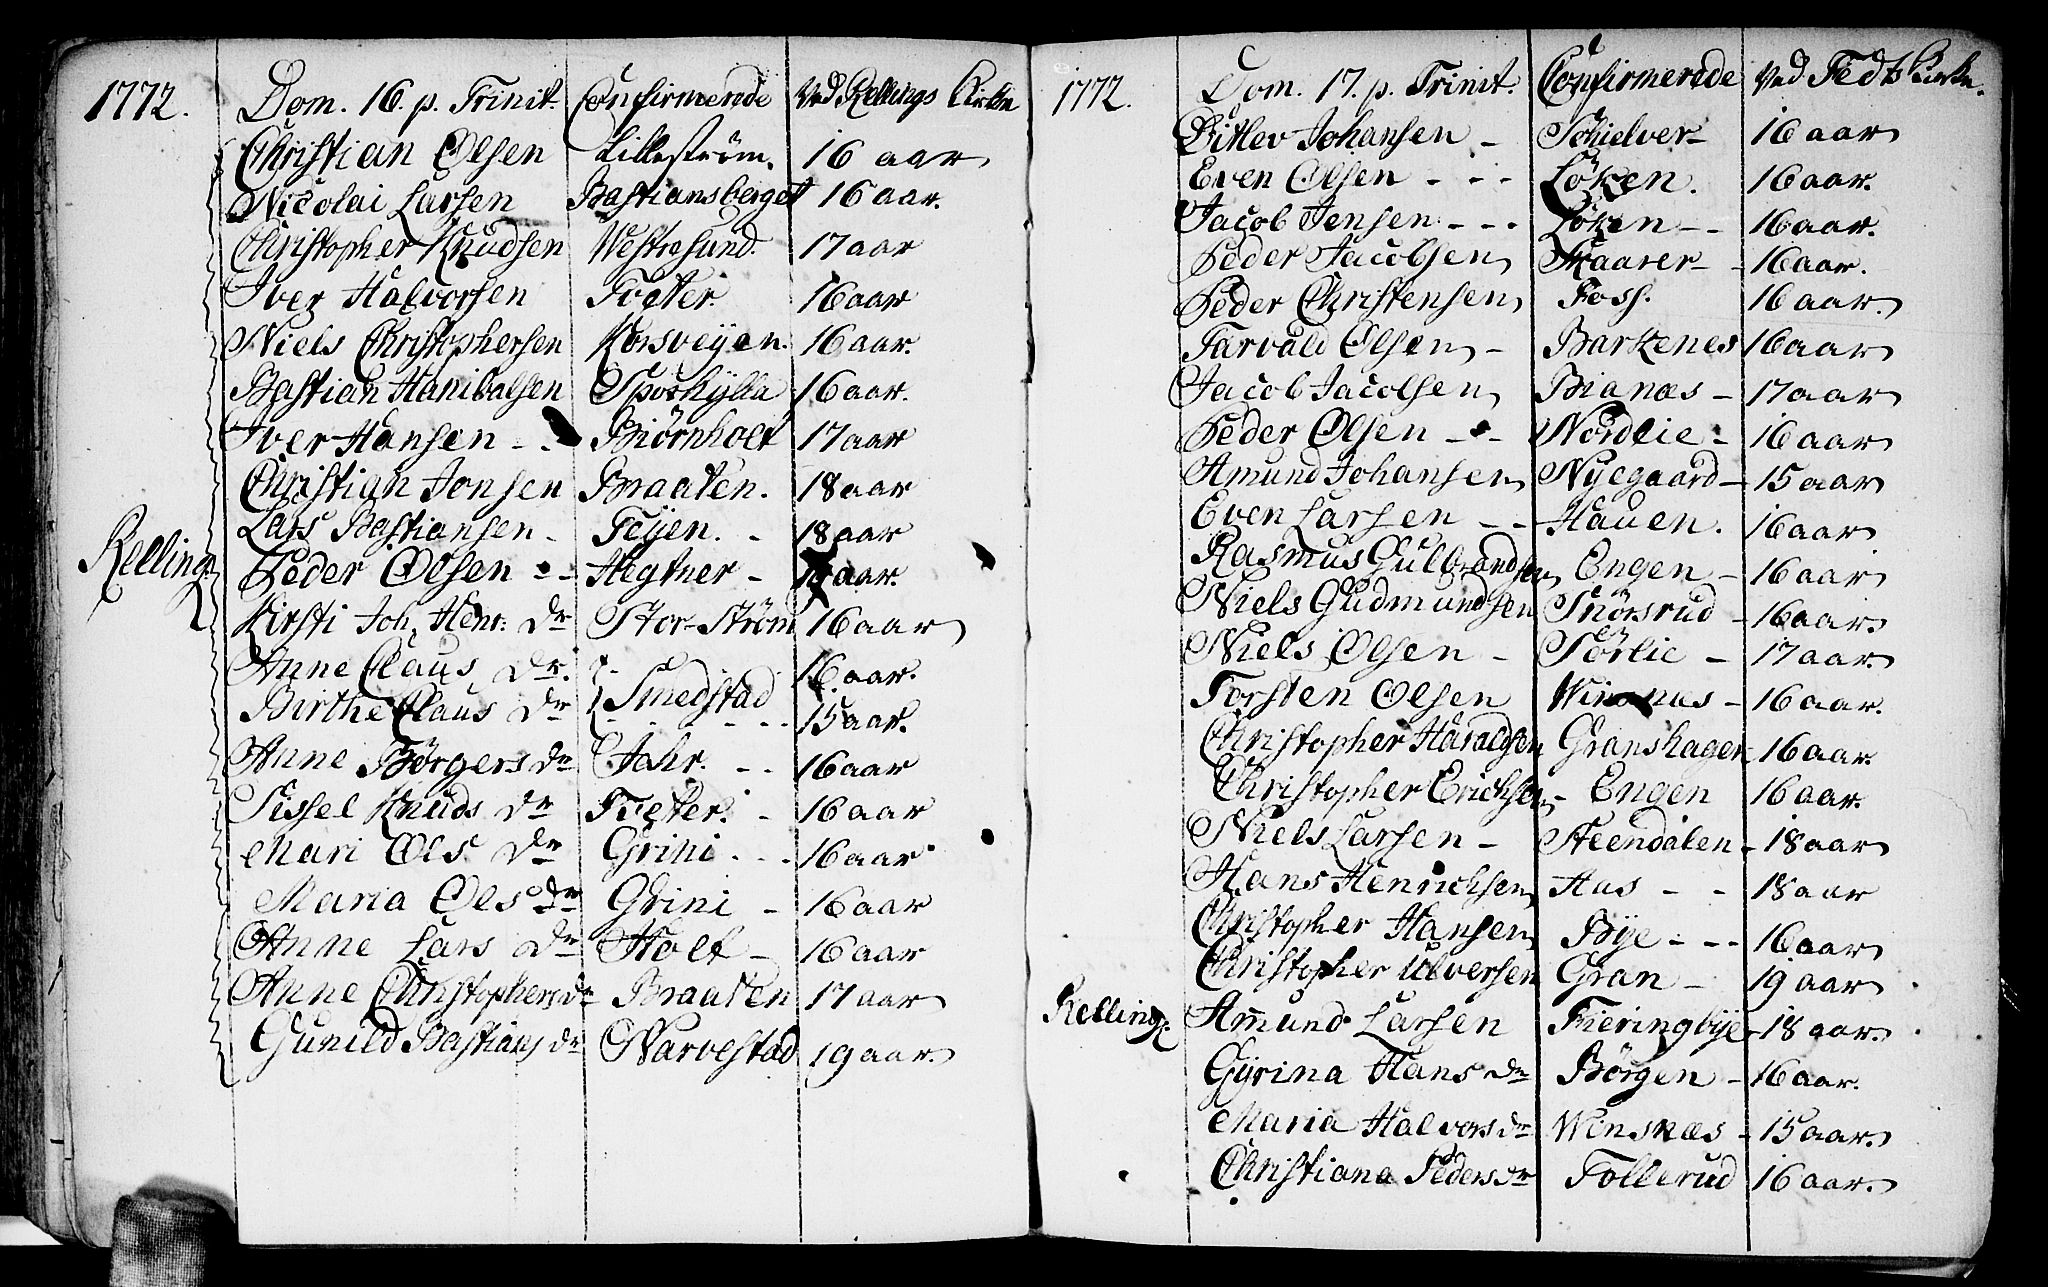 1772. Dom. 16. p. Trinit. Confirmerede ved Rellings Kirke
Christian Olsen Lillestrøm. 16 aar
Nicolai Larsen Bastiansberget 16 aar.
Christopher Knudsen Westresund. 17 aar
Iver Halvorsen Toeter. 16 aar
Niels Christophersen Korsveyen. 16 aar.
Bastian Hanibalsen 16 aar.
Iver Hansen - - Biörnholt 17 aar
Christian Jonsen Braaten. 18 aar
Lars Bastiansen - Teyen. - 18 aar
Relling. Peder Olsen - - Hegtner - aar.
Kirsti Joh. Henr: Dr Stor-Ström 16 aar
Anne Claus Dr. 16 aar.
Birthe Claus Dr Smedstad 15 aar.
Anne Börgers Dr Jahr. - - 16 aar
Sissel Knuds Dr Toeter. - 16 aar
Mari Ols Dr Grini - - - 16 aar
Maria Ols Dr Grini - 16 aar
Anne Lars Dr Holt - 16 aar
Anne Christophers Dr Braaten 17 aar
Gunild Bastians Dr Narvestad 19 aar.
1772. Dom. 17. p. Trinit. Confirmerede ved Fedts Kirke.
Ditlev Johansen - Schielver- 16 aar
Even Olsen - - - Löken. 16 aar.
Jacob Jensen - - - Löken - - 16 aar.
Peder Jacobsen Skaarer- - 16 aar.
Peder Christensen Foss. 16 aar.
Tarvald Olsen - Barkenes 16 aar
Jacob Jacobsen Bianæs - 17 aar
Peder Olsen - - Nordlie - 16 aar
Amund Johansen Nyegaard - 15 aar
Even Larsen - - Hauen. 16 aar
Rasmus Gulbrandsen Engen - 16 aar
Niels Gudmundsen Snörsrud - 16 aar.
Niels Olsen - Törlie - 17 aar.
Torsten Olsen 16 aar.
Christopher Haraldsen Granshagen 16 aar.
Christopher Erichsen - Engen 16 aar.
Niels Larsen - Steendalen - 18 aar
Hans Henrichsen Aas - - 18 aar
Christopher Hansen Bye - - - 16 aar
Christopher Ulversen Gran - 19 aar
Relling. Amund Larsen Fieringbye 18 aar.
Gyrina Hans Dr Börgen - 16 aar.
Maria Halvors Dr Winsnæs - 15 aar.
Christiana Peders Dr Tollerud 16 aar.